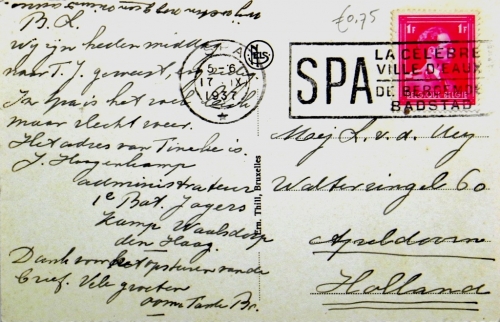 B. L.
Wij zijn heden middag
naar T. J. geweest, erg
In Spa is het
maar slecht weer.
Het adres van Tineke is.
J. Hoogenkamp
administrateur
1e Bat. Jagers
Kamp Waalsdorp
den Haag.
Dank voor het opsturen van de
brief. Vele groeten
oom Tante Br.
€0,75
1F 1F
SPA
5-6
17
1937
SPA
LA CÉLÈBRE
VILLE D'EAUX
DE BEROEMDE
BADSTAD
Ern. Thill, Bruxelles
NELS
Mej L. v. d. Weg
Waltersingel 60
Apeldoorn
Holland